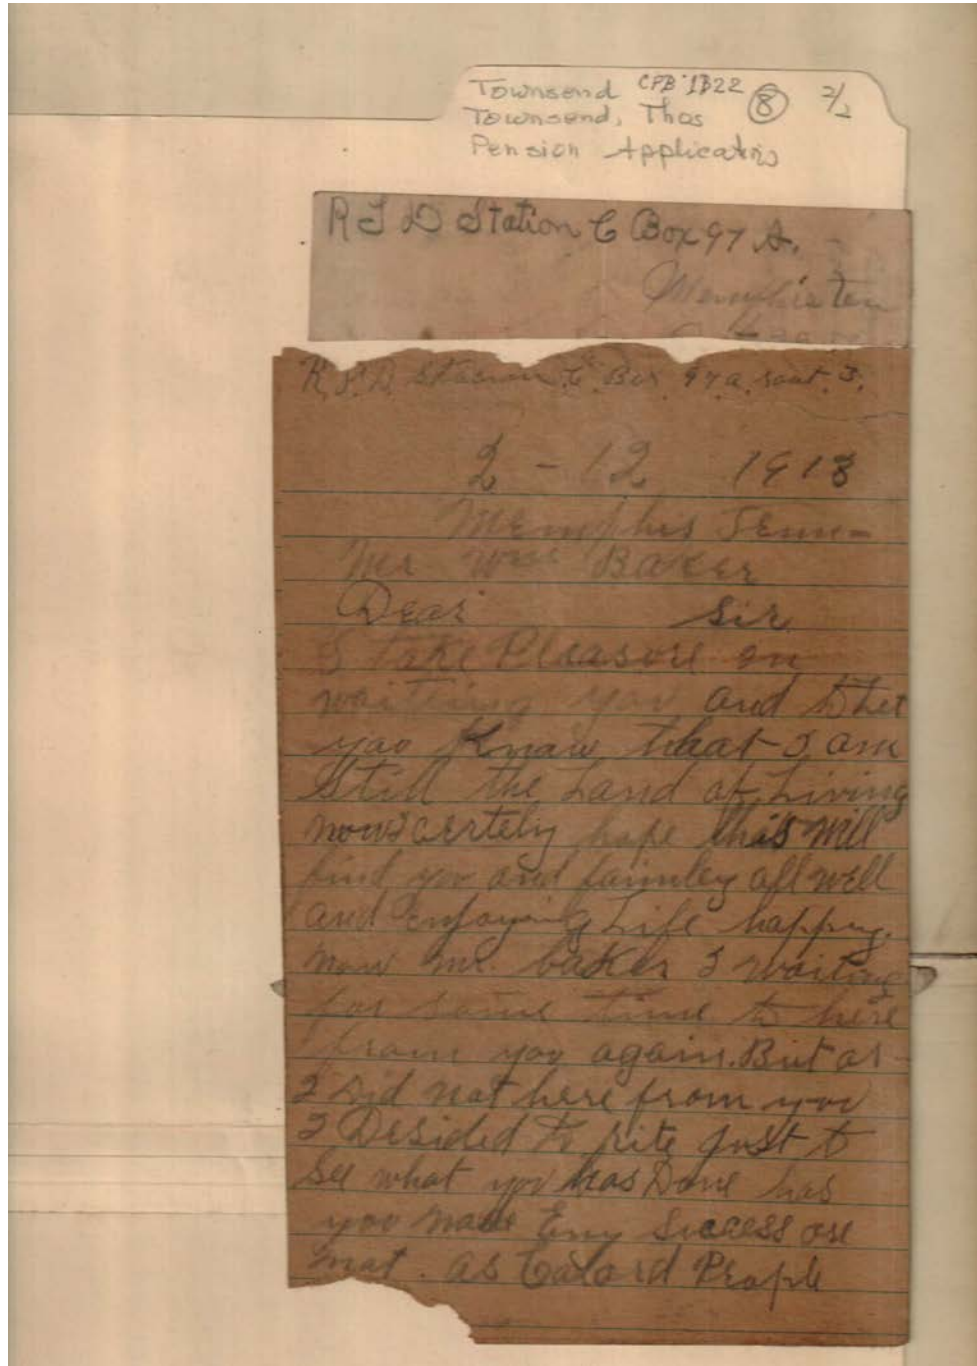 Townsend CPB 1B22 (8) 2/2
Townsend, Thos
Pension Applications
R F D Station C Box 97 A.
Memphis Ten
R.F.D. Station C Box 97a rout 3.
2 - 12 1918
Memphis Tenn-
Mr Wm Baker
Dear Sir
I take Pleasore in
writing you and to let
you Know that I am
Still the Land of Living
now I certely hope this will
find you and familey all well
and enjoying Life happy.
now mr. baker I waiting
for some time to here
from you again. But as
I did not here from you
I Desided to rite just to
see what you has Done has
you made Eny Success ore
not. as Calord People